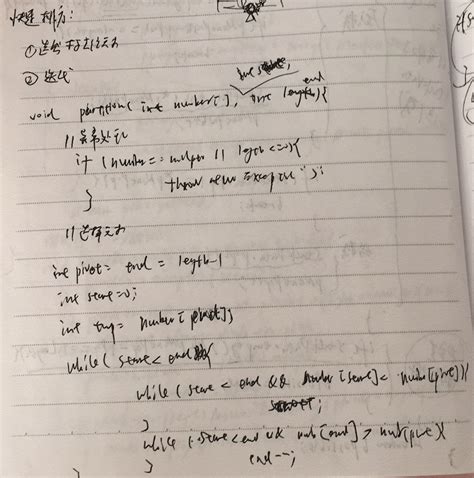 快速排序:
①选择标杆元素
②迭代
int start, end
void partition( int number[], int length){
//异常处理
if (number == nullptr || length <=0){
throw new Exception(" ");
}
//选择元素
int pivot = end = length-1
int start=0;
int tmp = number[pivot];
while( start < end ){
while ( start < end && number[start] < number[pivot]){
}
while ( start<end && numb[end] > numb[pivot]){
end--;
}
}